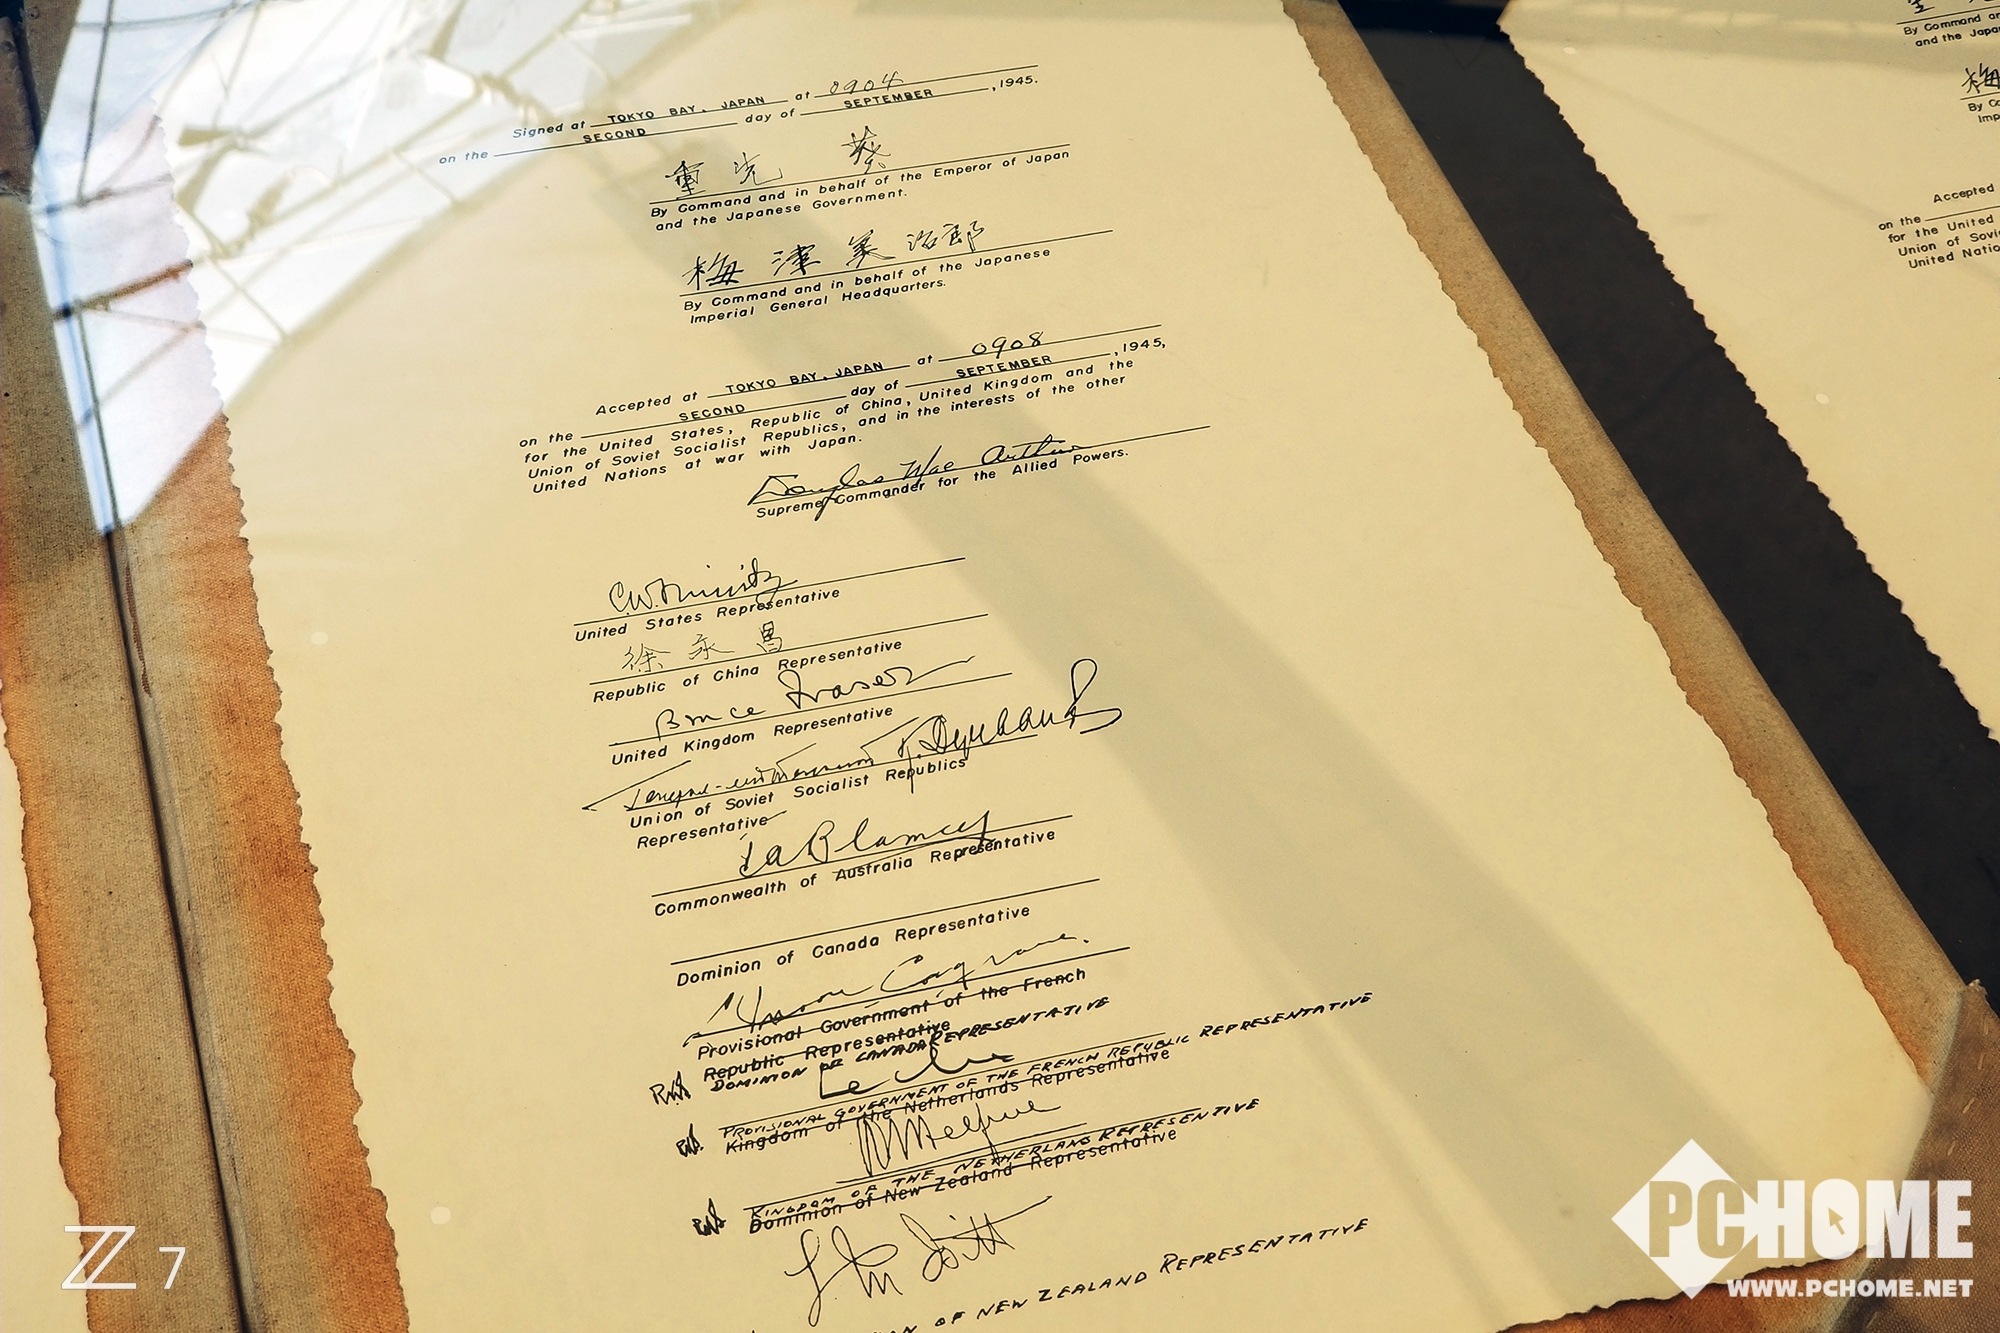 Signed at TOKYO BAY, JAPAN at 0904
on the SECOND day of SEPTEMBER ,1945.
重光 葵
By Command and in behalf of the Emperor of Japan
and the Japanese Government.
梅津美治郎
By Command and in behalf of the Japanese
Imperial General Headquarters.
Accepted at TOKYO BAY, JAPAN at 0908
on the SECOND day of SEPTEMBER ,1945,
for the United States, Republic of China, United Kingdom and the
Union of Soviet Socialist Republics, and in the interests of the other
United Nations at war with Japan.
Douglas MacArthur
Supreme Commander for the Allied Powers.
C.W. Nimitz
United States Representative
徐永昌
Republic of China Representative
Bruce Fraser
United Kingdom Representative
Union of Soviet Socialist Republics
Representative
Blamey
Commonwealth of Australia Representative
Dominion of Canada Representative
Cosgrave
Provisional Government of the French
Republic Representative
DOMINION OF CANADA REPRESENTATIVE
Leclerc
PROVISIONAL GOVERNMENT OF THE FRENCH REPUBLIC REPRESENTATIVE
Kingdom of the Netherlands Representative
KINGDOM OF THE NETHERLANDS REPRESENTATIVE
Dominion of New Zealand Representative
OF NEW ZEALAND REPRESENTATIVE
By Command
and the Japa
梅
By Co
Imp
Accepted
on the
for the United
Union of Sovi
United Natio
Z 7
PCHOME
WWW.PCHOME.NET